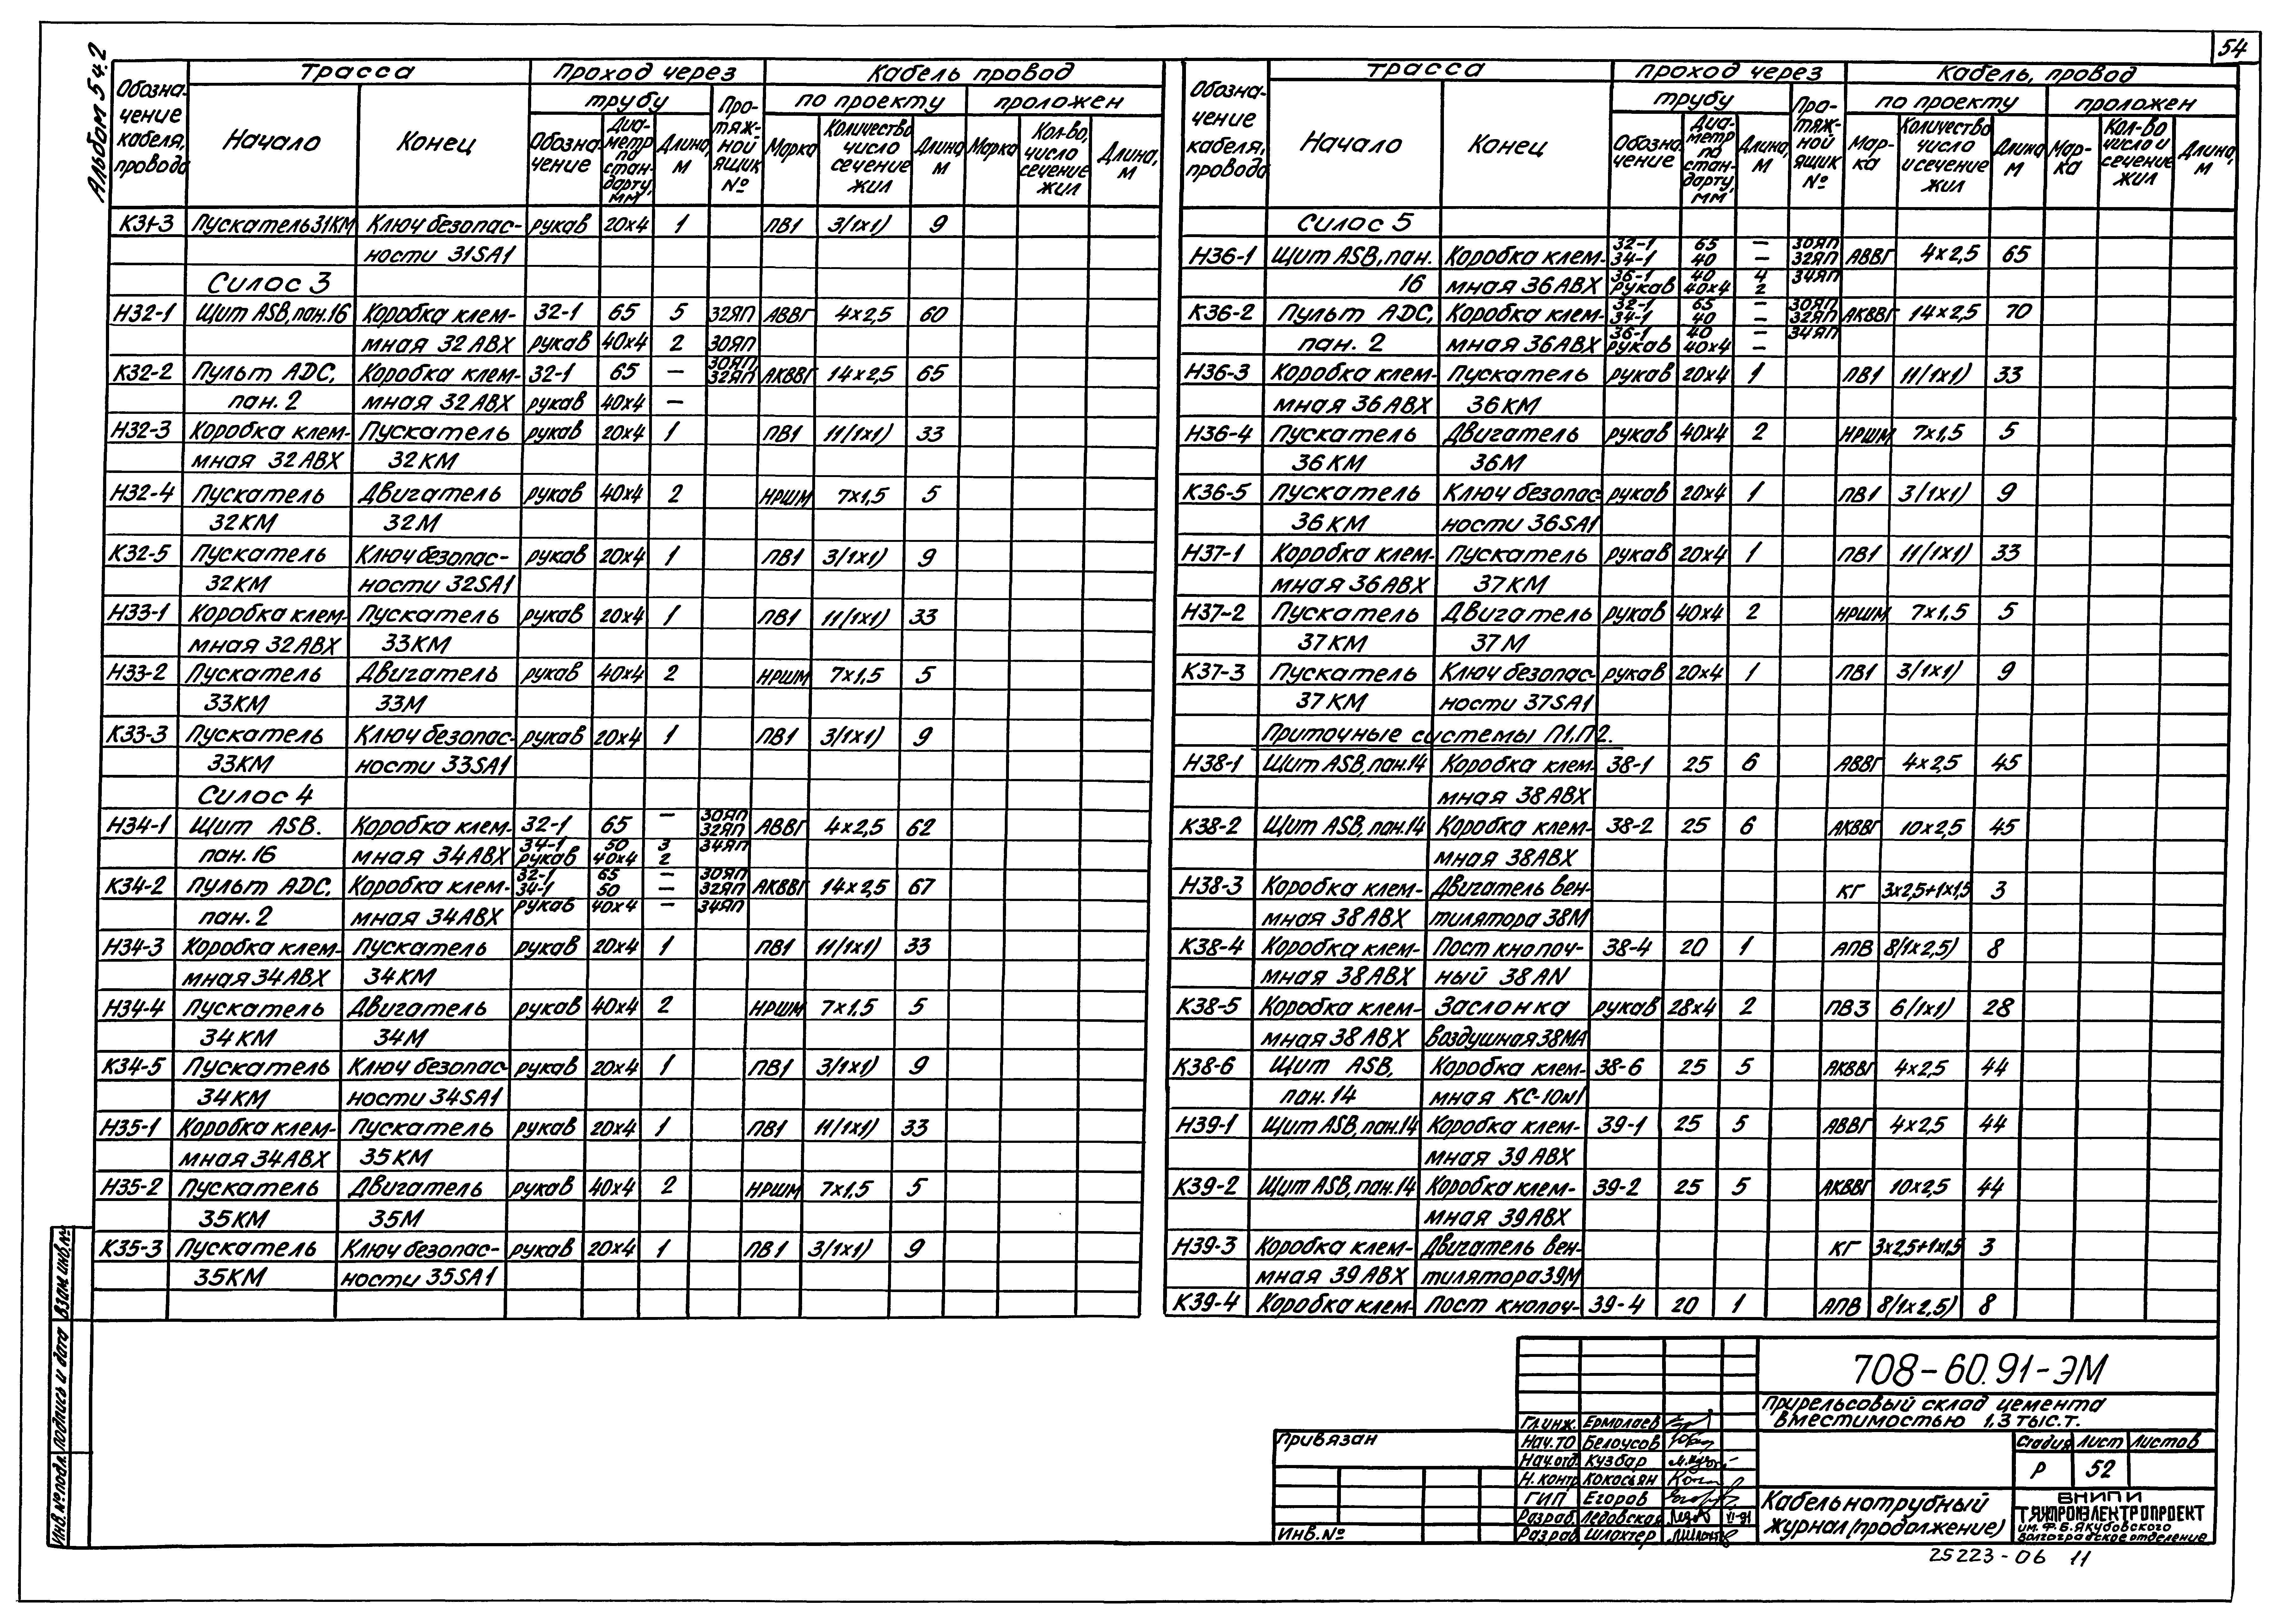 54
Альбом 5 ч.2
Обозначение кабеля, провода | Трасса | Проход через | Кабель провод
Начало | Конец | трубу | Протяжной ящик № | по проекту | проложен
Обозначение | Диаметр по стандарту, мм | Длина, м | Марка | Количество число сечение жил | Длина, м | Марка | Кол-во, число сечение жил | Длина, м
К31-3 Пускатель 31КМ Ключ безопас- рукав 20х4 1 ПВ1 3/1х1) 9
ности 31SA1
Силос 3
Н32-1 Щит ASB, пан.16 Коробка клем- 32-1 65 5 32ЯП АВВГ 4х2,5 60
мная 32АВХ рукав 40х4 2 30ЯП
К32-2 Пульт ADC, Коробка клем- 32-1 65 — 30ЯП 32ЯП АКВВГ 14х2,5 65
пан. 2 мная 32АВХ рукав 40х4 —
Н32-3 Коробка клем- Пускатель рукав 20х4 1 ПВ1 11/1х1) 33
мная 32АВХ 32КМ
Н32-4 Пускатель Двигатель рукав 40х4 2 НРШМ 7х1,5 5
32КМ 32М
К32-5 Пускатель Ключ безопас- рукав 20х4 1 ПВ1 3/1х1) 9
32КМ ности 32SA1
Н33-1 Коробка клем- Пускатель рукав 20х4 1 ПВ1 11/1х1) 33
мная 32АВХ 33КМ
Н33-2 Пускатель Двигатель рукав 40х4 2 НРШМ 7х1,5 5
33КМ 33М
К33-3 Пускатель Ключ безопас- рукав 20х4 1 ПВ1 3/1х1) 9
33КМ ности 33SA1
Силос 4
Н34-1 Щит ASB. Коробка клем- 32-1 65 — 30ЯП 32ЯП АВВГ 4х2,5 62
пан. 16 мная 34АВХ 34-1 50 3 34ЯП
рукав 40х4 2
К34-2 Пульт ADC, Коробка клем- 32-1 65 — 30ЯП АКВВГ 14х2,5 67
34-1 50 — 32ЯП
пан. 2 мная 34АВХ рукав 40х4 — 34ЯП
Н34-3 Коробка клем- Пускатель рукав 20х4 1 ПВ1 11/1х1) 33
мная 34АВХ 34КМ
Н34-4 Пускатель Двигатель рукав 40х4 2 НРШМ 7х1,5 5
34КМ 34М
К34-5 Пускатель Ключ безопас- рукав 20х4 1 ПВ1 3/1х1) 9
34КМ ности 34SA1
Н35-1 Коробка клем- Пускатель рукав 20х4 1 ПВ1 11/1х1) 33
мная 34АВХ 35КМ
Н35-2 Пускатель Двигатель рукав 40х4 2 НРШМ 7х1,5 5
35КМ 35М
К35-3 Пускатель Ключ безопас- рукав 20х4 1 ПВ1 3/1х1) 9
35КМ ности 35SA1
Обозначение кабеля, провода | Трасса | Проход через | Кабель, провод
Начало | Конец | трубу | Протяжной ящик № | по проекту | проложен
Обозначение | Диаметр по стандарту, мм | Длина, м | Марка | Количество число и сечение жил | Длина, м | Марка | Кол-во число и сечение жил | Длина, м
Силос 5
Н36-1 Щит ASB, пан. Коробка клем- 32-1 65 — 30ЯП АВВГ 4х2,5 65
34-1 40 — 32ЯП
16 мная 36АВХ 36-1 40 4 34ЯП
рукав 40х4 2
К36-2 Пульт ADC, Коробка клем- 32-1 65 — 30ЯП АКВВГ 14х2,5 70
34-1 40 — 32ЯП
пан. 2 мная 36АВХ 36-1 40 — 34ЯП
рукав 40х4 —
Н36-3 Коробка клем- Пускатель рукав 20х4 1 ПВ1 11/1х1) 33
мная 36АВХ 36КМ
Н36-4 Пускатель Двигатель рукав 40х4 2 НРШМ 7х1,5 5
36КМ 36М
К36-5 Пускатель Ключ безопас рукав 20х4 1 ПВ1 3/1х1) 9
36КМ ности 36SA1
Н37-1 Коробка клем- Пускатель рукав 20х4 1 ПВ1 11/1х1) 33
мная 36АВХ 37КМ
Н37-2 Пускатель Двигатель рукав 40х4 2 НРШМ 7х1,5 5
37КМ 37М
К37-3 Пускатель Ключ безопас- рукав 20х4 1 ПВ1 3/1х1) 9
37КМ ности 37SA1
Приточные системы П1,П2.
Н38-1 Щит ASB, пан.14 Коробка клем- 38-1 25 6 АВВГ 4х2,5 45
мная 38АВХ
К38-2 Щит ASB, пан.14 Коробка клем- 38-2 25 6 АКВВГ 10х2,5 45
мная 38АВХ
Н38-3 Коробка клем- Двигатель вен- КГ 3х2,5+1х1,5 3
мная 38АВХ тилятора 38М
К38-4 Коробка клем- Пост кнопоч- 38-4 20 1 АПВ 8/1х2,5) 8
мная 38АВХ ный 38AN
К38-5 Коробка клем- Заслонка рукав 28х4 2 ПВ3 6/1х1) 28
мная 38АВХ воздушная 38МА
К38-6 Щит ASB, Коробка клем- 38-6 25 5 АКВВГ 4х2,5 44
пан. 14 мная КС-10м1
Н39-1 Щит ASB, пан.14 Коробка клем- 39-1 25 5 АВВГ 4х2,5 44
мная 39АВХ
К39-2 Щит ASB, пан.14 Коробка клем- 39-2 25 5 АКВВГ 10х2,5 44
мная 39АВХ
Н39-3 Коробка клем- Двигатель вен- КГ 3х2,5+1х1,5 3
мная 39АВХ тилятора 39М
К39-4 Коробка клем- Пост кнопоч- 39-4 20 1 АПВ 8/1х2,5) 8
Взам. инв. №
Подпись и дата
Инв. № подл.
Привязан
Инв. №
Гл.инж. Ермолаев
Нач.ТО Белоусов
Нач.отд. Кузбар
Н. контр Кокосьян
ГИП Егоров
Разраб. Ледовская VI-91
Разраб Шлахтер
708-60.91-ЭМ
Прирельсовый склад цемента
вместимостью 1,3 тыс.т.
Стадия Лист Листов
Р 52
Кабельнотрубный
журнал (продолжение)
ВНИПИ
ТЯЖПРОМЭЛЕКТРОПРОЕКТ
им. Ф.Б.Якубовского
Волгоградское отделение
25223-06 11